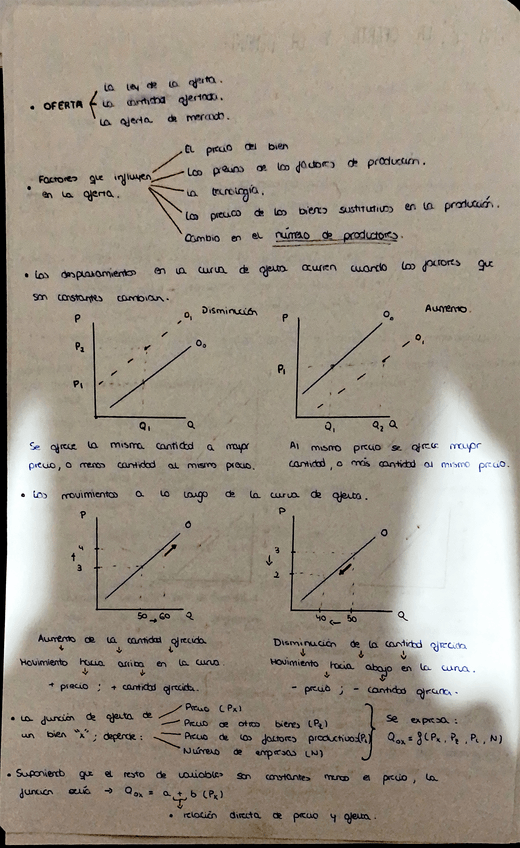 La ley de la oferta.
• OFERTA La cantidad ofertada.
La oferta de mercado.
El precio del bien
• Factores que influyen Los precios de los factores de producción.
en la oferta. La tecnología.
Los precios de los bienes sustitutivos en la producción.
Cambio en el número de productores.
• Los desplazamientos en la curva de oferta ocurren cuando los factores que
son constantes cambian.
P O₁ Disminución
P₂ O₀
P₁
Q₁ Q
P O₀ Aumento.
O₁
P₁
Q₁ Q₂ Q
Se ofrece la misma cantidad a mayor
precio, o menos cantidad al mismo precio.
Al mismo precio se ofrece mayor
cantidad, o más cantidad al mismo precio.
• Los movimientos a lo largo de la curva de oferta.
P O
4
↑
3
50 → 60 Q
P O
3
↓
2
40 ← 50 Q
Aumento de la cantidad ofrecida
Movimiento hacia arriba en la curva.
+ precio ; + cantidad ofrecida.
Disminución de la cantidad ofrecida
Movimiento hacia abajo en la curva.
- precio ; - cantidad ofrecida.
• La función de oferta de Precio (Pₓ)
un bien "x"; depende: Precio de otros bienes (P₂)
Precio de los factores productivos (Pᵢ)
Número de empresas (N)
Se expresa:
Qₒₓ = f(Pₓ, P₂, Pᵢ, N)
• Suponiendo que el resto de variables son constantes menos el precio, la
función sería → Qₒₓ = a + b (Pₓ)
• relación directa de precio y oferta.